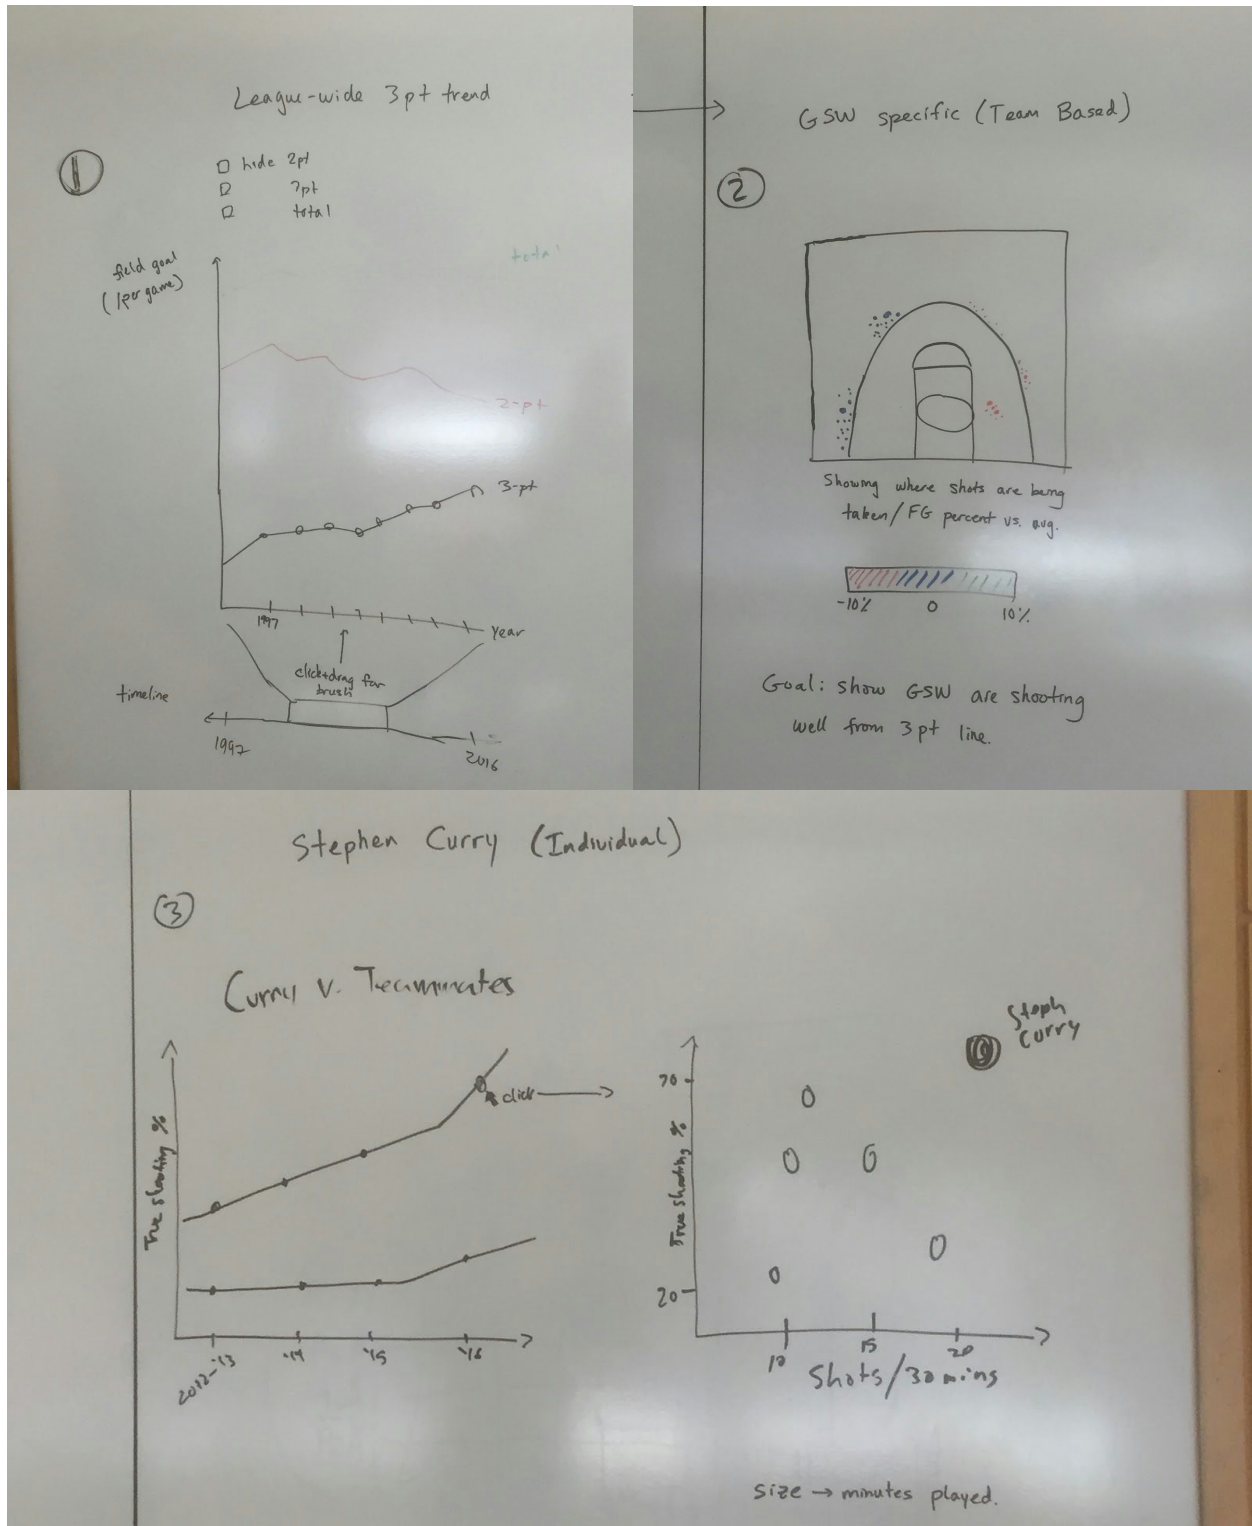 League-wide 3pt trend
1
hide 2pt
3pt
total
field goal
(/per game)
total
2-pt
3-pt
1997
year
click+drag for
brush
timeline
1997
2016
GSW specific (Team Based)
2
Showing where shots are being
taken/FG percent vs. avg.
-10% 0 10%
Goal: show GSW are shooting
well from 3pt line.
Stephen Curry (Individual)
3
Curry v. Teammates
True shooting %
click
2012-'13 '14 '15 '16
Steph
Curry
True shooting %
70
20
10 15 20
Shots/30mins
size → minutes played.